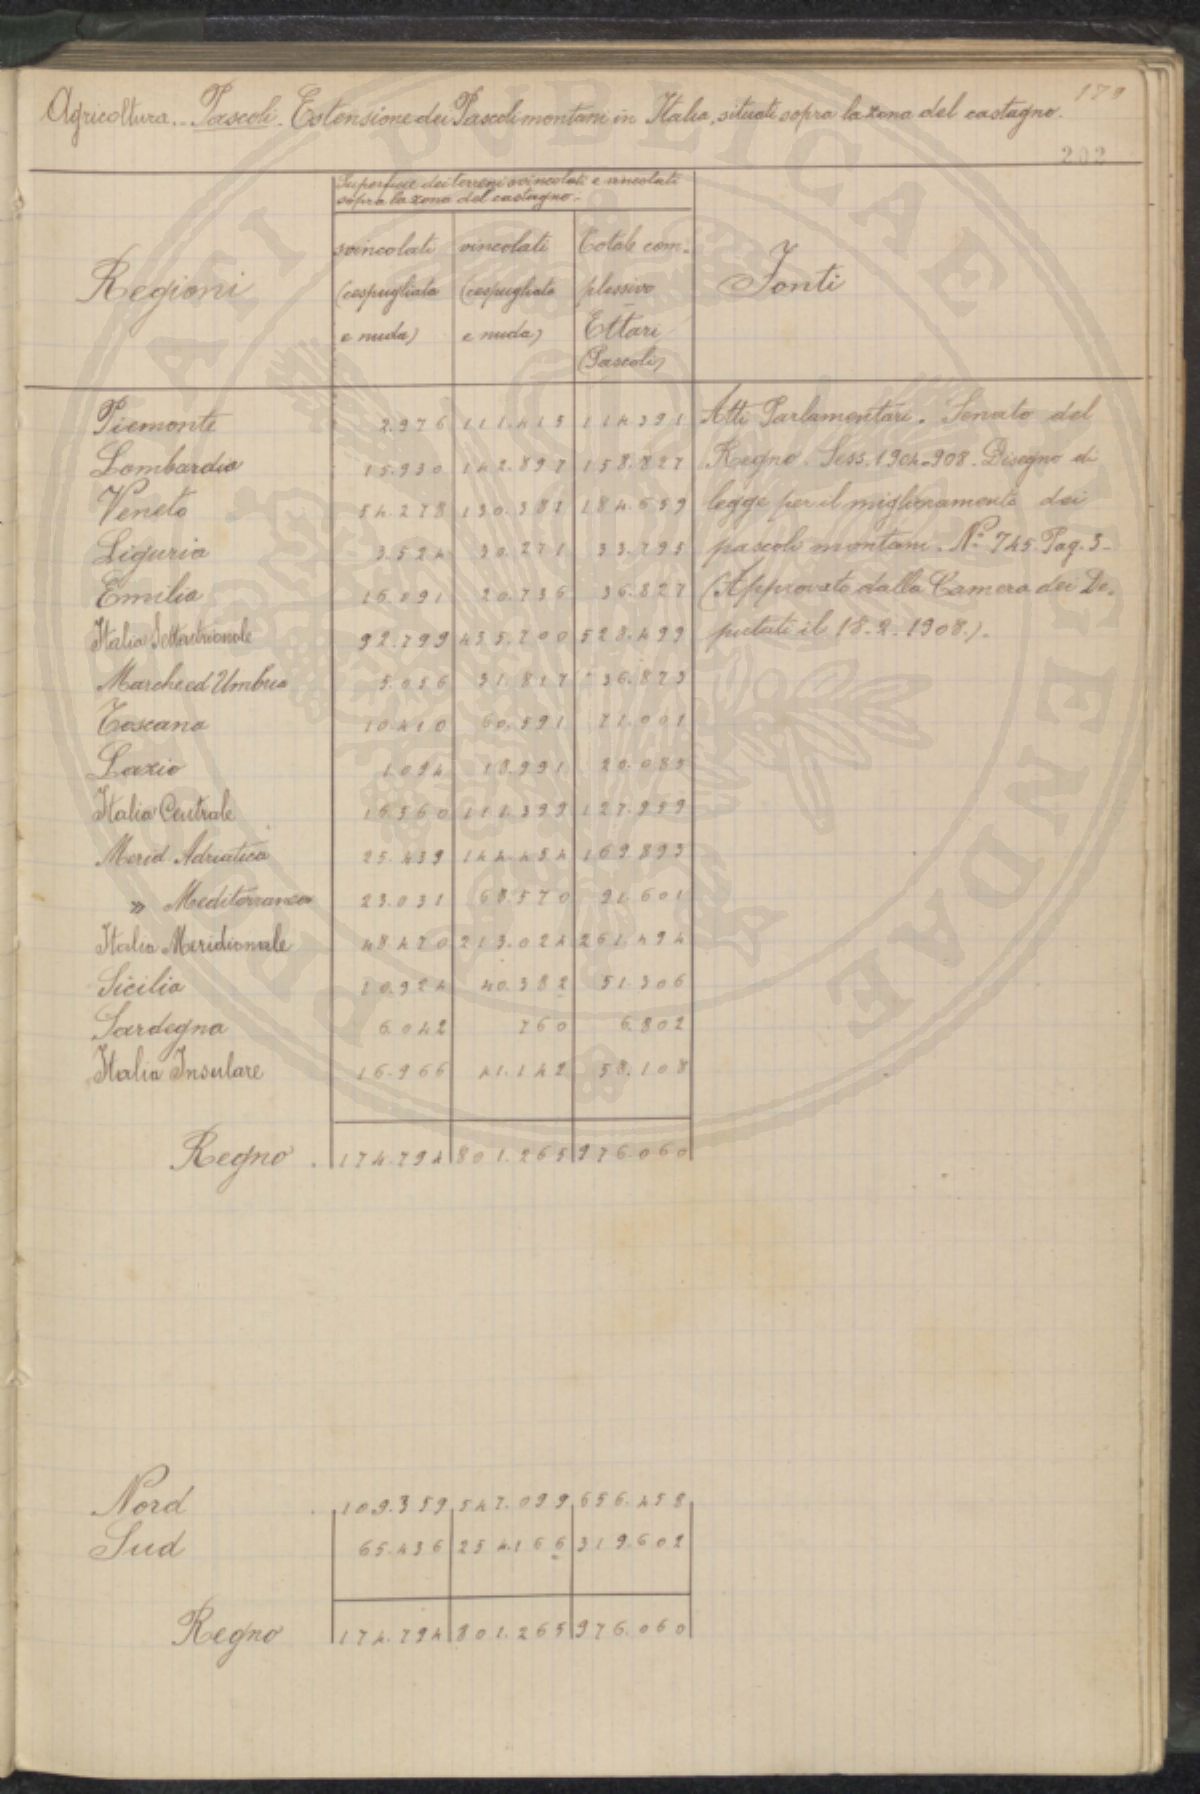 179
Agricoltura.. Pascoli. Estensione dei Pascoli montani in Italia, situati sopra la zona del castagno.
202
Superficie dei terreni svincolati e vincolati
sopra la zona del castagno.-
Regioni
svincolati (cespugliata e nuda)
vincolati (cespugliata e nuda)
Totale com-plessivo Ettari (Pascoli)
Fonti
Piemonte 2.976 111.415 114391
Lombardia 15.930 142.897 158.827
Veneto 54.278 130.381 184.659
Liguria 3.524 30.271 33.795
Emilia 16.091 20.736 36.827
Italia Settentrionale 92.799 435.700 528.499
Marche ed Umbria 5.056 31.817 36.873
Toscana 10.410 60.591 71.001
Lazio 1.094 18.991 20.085
Italia Centrale 16.560 111.399 127.959
Merid. Adriatica 25.439 144.454 169.893
" Mediterranea 23.031 68.570 91.601
Italia Meridionale 48.470 213.024 261.494
Sicilia 10.924 40.382 51.306
Sardegna 6.042 760 6.802
Italia Insulare 16.966 41.142 58.108
Regno . 174.794 801.265 976.060
Atti Parlamentari. Senato del
Regno. Sess. 1904-908. Disegno di
legge per il miglioramento dei
pascoli montani. N.º 745. Pag. 3-
(Approvato dalla Camera dei De-
putati il 18-2-1908.).
Nord 109.359 547.099 656.458
Sud 65.436 254.166 319.602
Regno 174.794 801.265 976.060